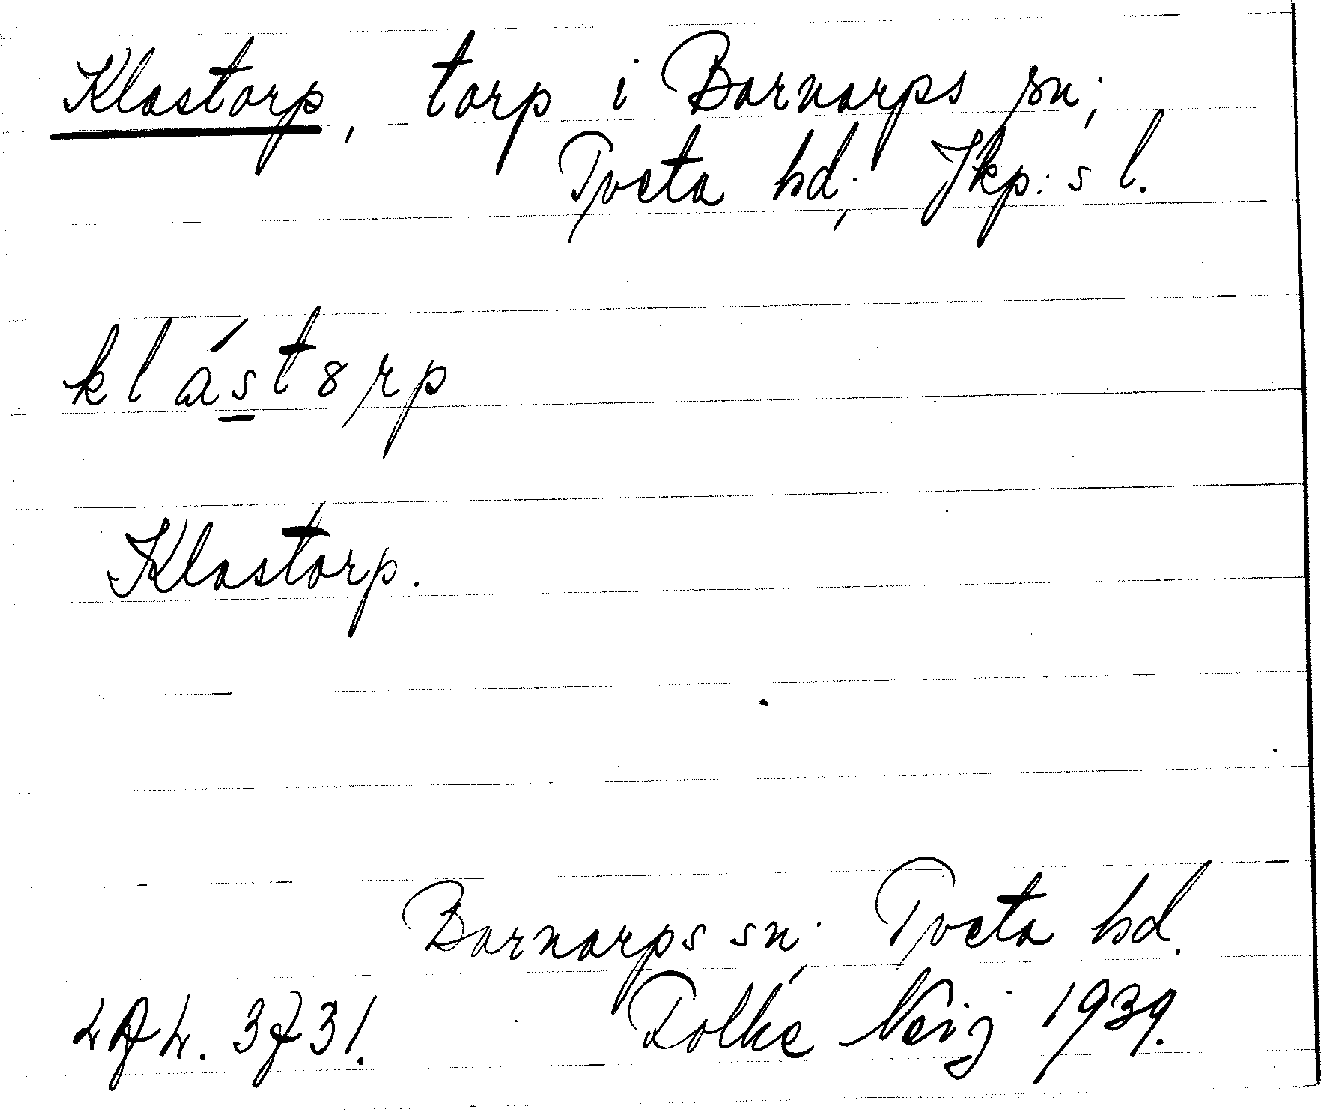 Klastorp, torp i Barnarps sn;
Tveta hd; Jkp:s l.
klást8rp
Klastorp.
Barnarps sn; Tveta hd.
3731. Folke Neij 1939.